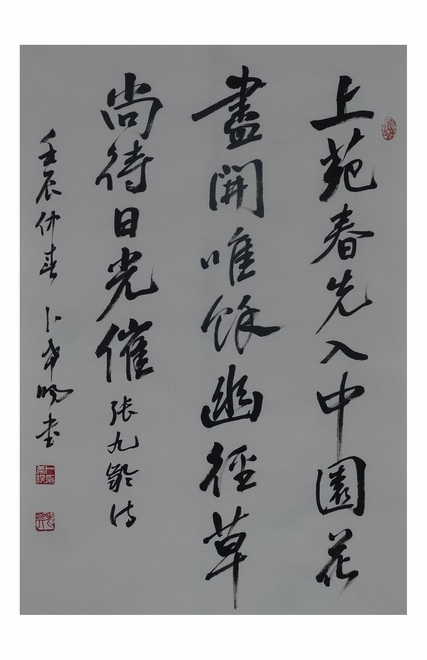 上苑春先入中園花
盡開唯餘幽徑草
尚待日光催張九齡詩
壬辰仲春卜希暘書